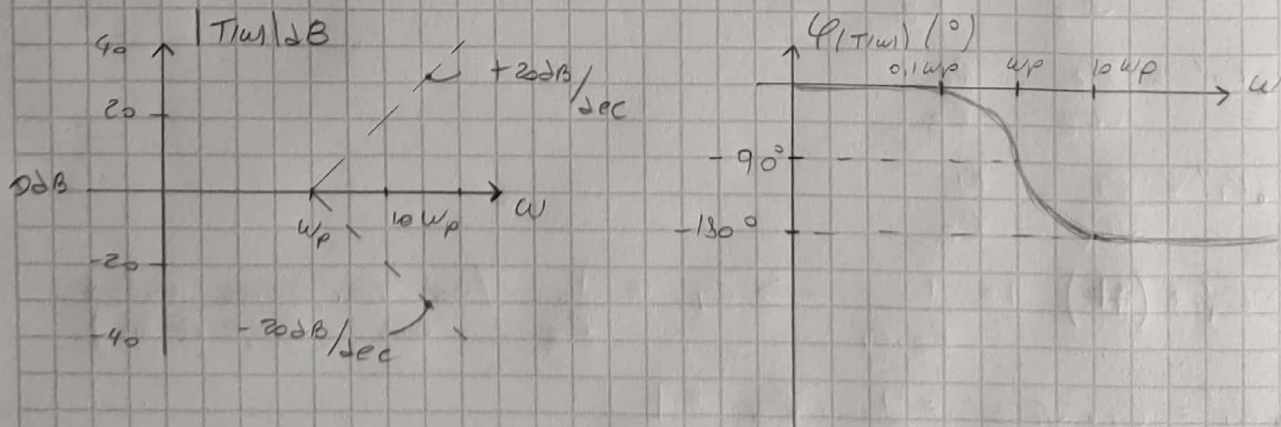 |T(ω)|dB
40
+20dB/dec
20
0dB
ωp
10 ωp
ω
-20
-20dB/dec
-40
φ(T(ω)) (°)
0,1ωp
ωp
10 ωp
ω
-90°
-180°